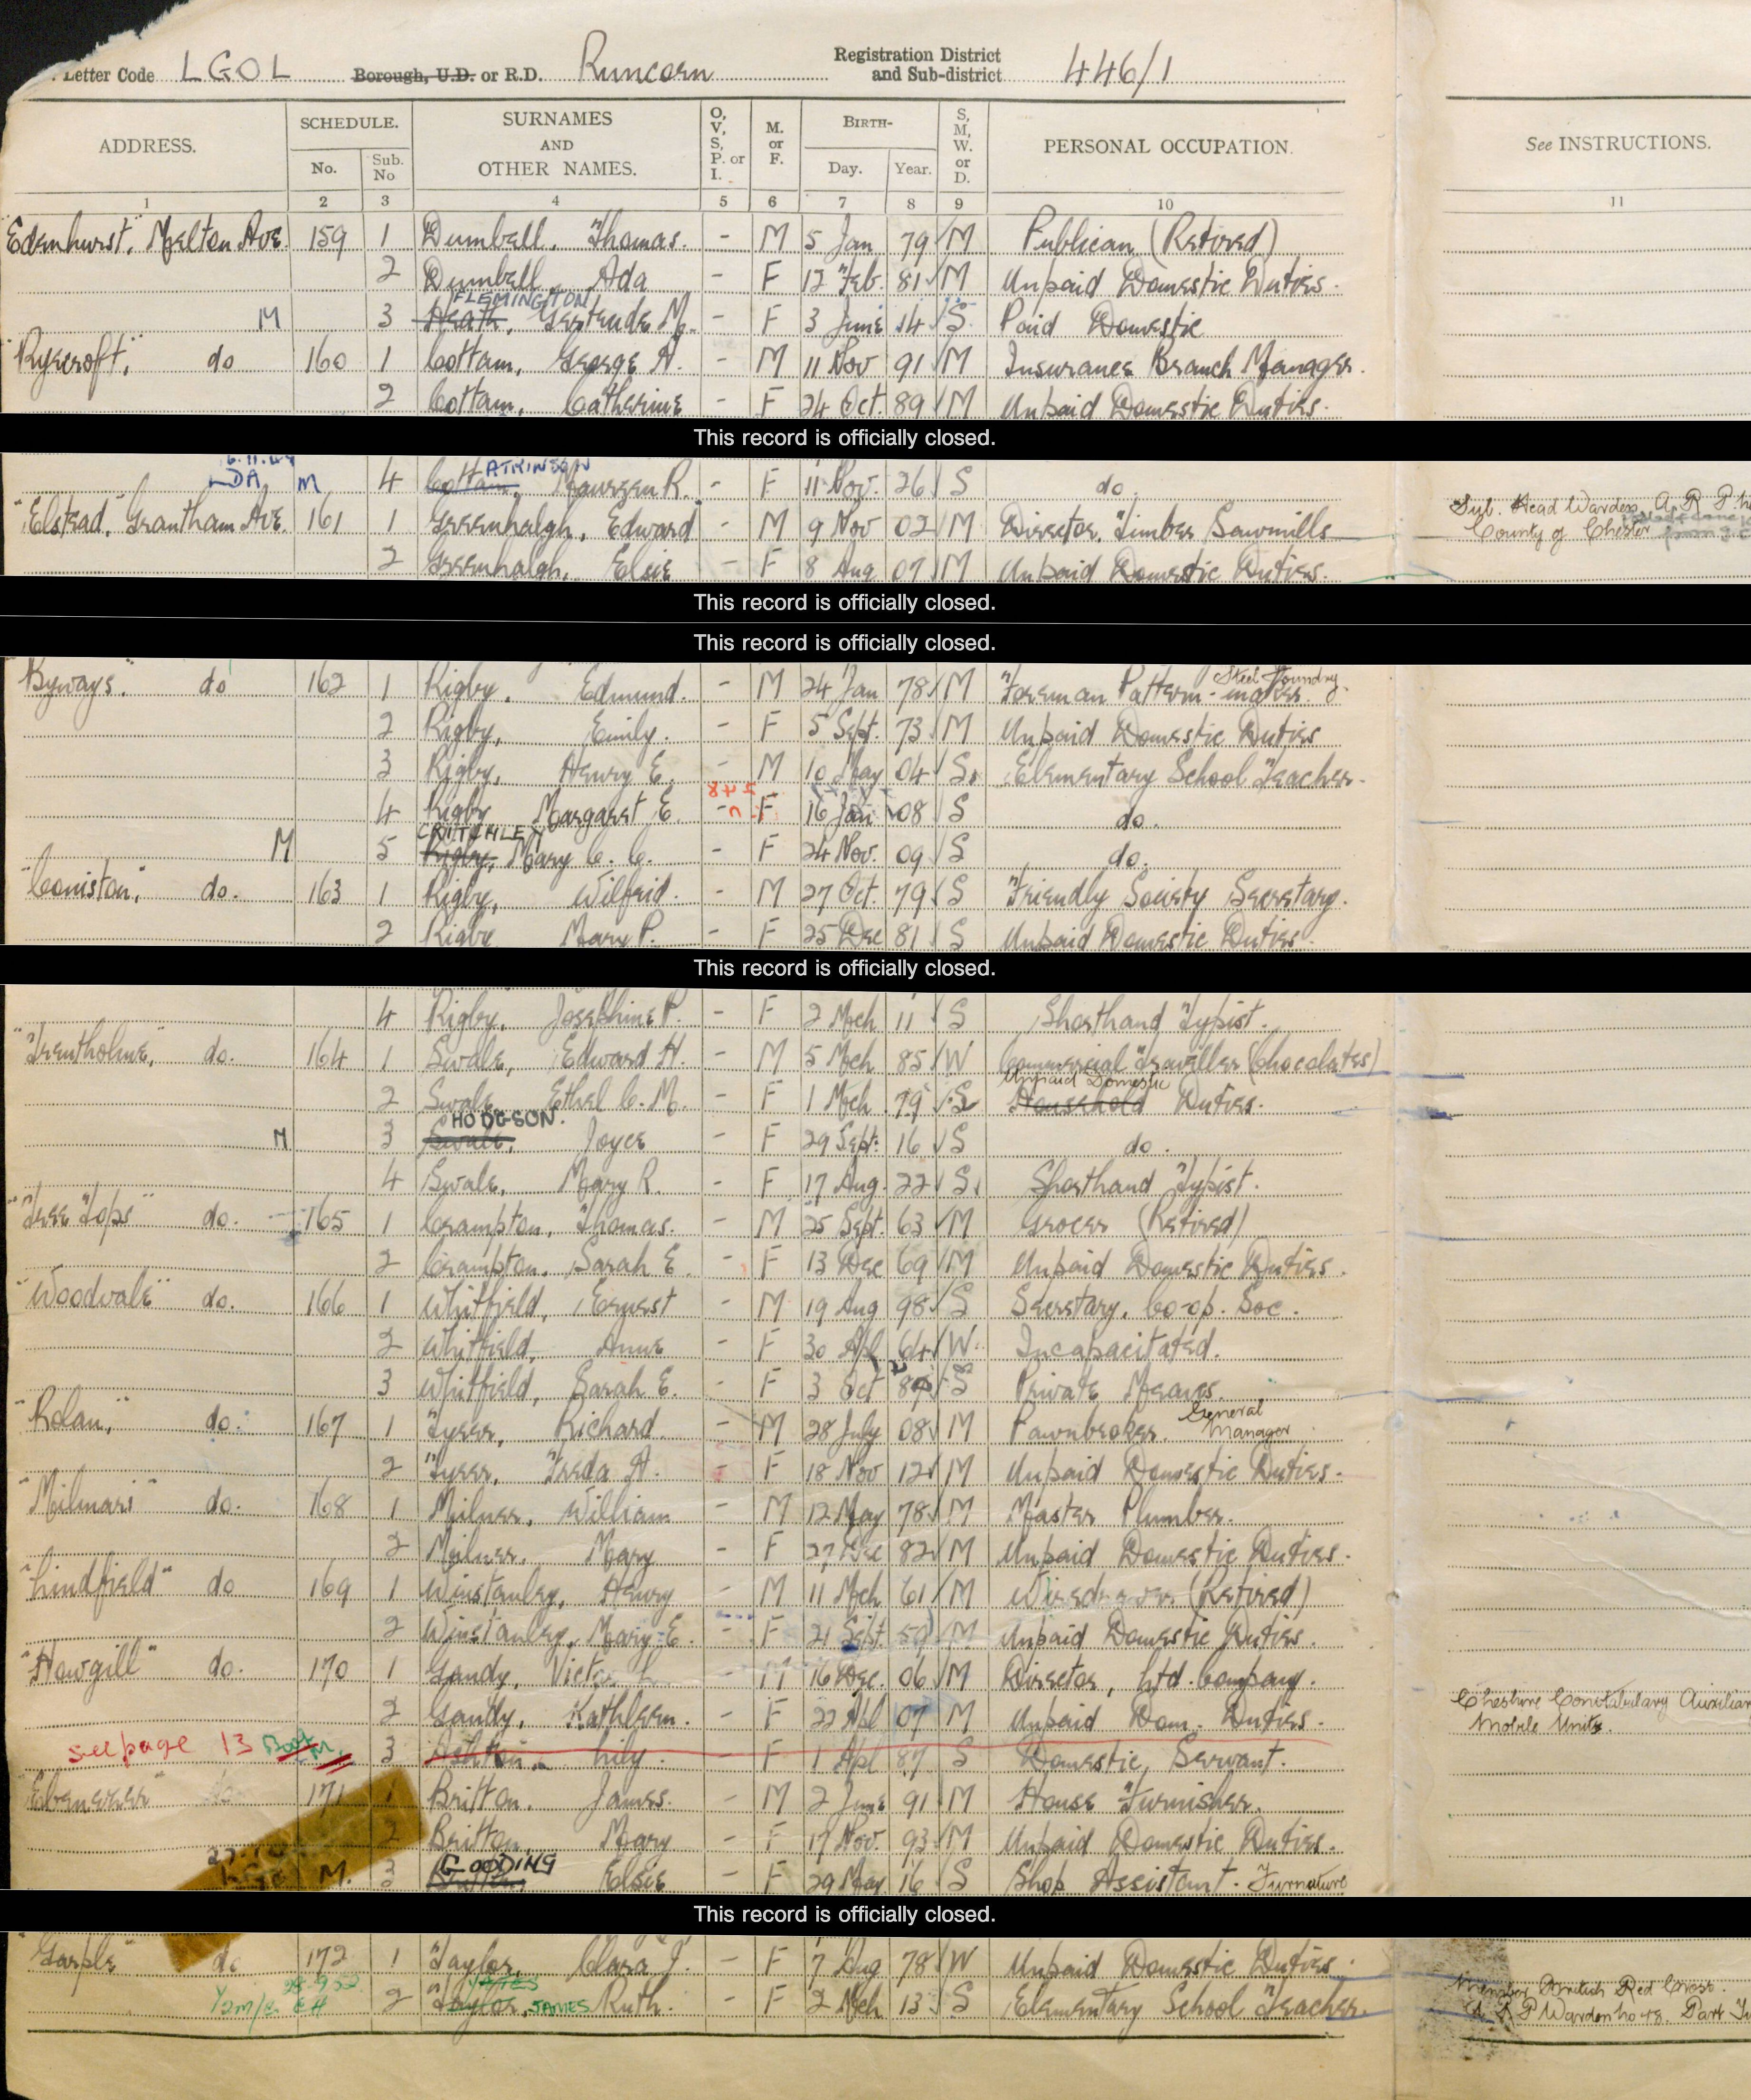 Letter Code LGOL Borough, U.D. or R.D. Runcorn Registration District and Sub-district 446/1
ADDRESS. SCHEDULE. No. Sub. No SURNAMES AND OTHER NAMES. O, V, S, P. or I. M. or F. BIRTH- Day. Year. S, M, W. or D. PERSONAL OCCUPATION. See INSTRUCTIONS.
1 2 3 4 5 6 7 8 9 10 11
"Edenhurst," Melton Ave. 159 1 Dumbell, Thomas. - M 5 Jan 79 M Publican (Retired)
2 Dumbell Ada - F 12 Feb. 81 M Unpaid Domestic Duties.
FLEMINGTON
M 3 Heath, Gertrude M. - F 3 June 14 S. Paid Domestic
"Ryecroft," do 160 1 Cottam, George H. - M 11 Nov 91 M Insurance Branch Manager.
2 Cottam, Catherine - F 24 Oct. 89 M Unpaid Domestic Duties.
This record is officially closed.
ATKINSON
M 4 Cottam, Maureen R. - F 11 Nov. 26 S do.
"Elstead," Grantham Ave. 161 1 Greenhalgh, Edward - M 9 Nov 02 M Director, Timber Sawmills Sub. Head Warden A.R.P.
County of Chester
2 Greenhalgh, Elsie - F 8 Aug 07 M Unpaid Domestic Duties.
This record is officially closed.
This record is officially closed.
Steel Foundry.
"Byways." do 162 1 Rigby, Edmund. - M 24 Jan 78 M Foreman Pattern-maker.
2 Rigby, Emily. - F 5 Sept. 73 M Unpaid Domestic Duties
3 Rigby, Henry E. - M 10 May 04 S. Elementary School Teacher.
4 Rigby Margaret E. - F 16 Jan 08 S do.
CRITCHLEY
M 5 Rigby, Mary C. C. - F 24 Nov. 09 S do.
"Coniston," do. 163 1 Rigby, Wilfrid. - M 27 Oct. 79 S Friendly Society Secretary.
2 Rigby Mary P. - F 25 Dec 81 S Unpaid Domestic Duties.
This record is officially closed.
4 Rigby, Josephine P. - F 2 Mch 11 S Shorthand Typist.
"Trentholme," do. 164 1 Swale, Edward H. - M 5 Mch 85 W Commercial Traveller (Chocolates)
Unpaid Domestic
2 Swale Ethel C. M. - F 1 Mch 79 S Household Duties.
HODGSON.
M 3 Swale, Joyce - F 29 Sept. 16 S do.
4 Swale, Mary R. - F 17 Aug. 22 S. Shorthand Typist.
"Tree Tops" do. 165 1 Crampton, Thomas. - M 25 Sept. 63 M Grocer (Retired)
2 Crampton, Sarah E. - F 13 Dec 69 M Unpaid Domestic Duties.
"Woodvale" do. 166 1 Whitfield, Ernest - M 19 Aug 98 S Secretary, Co-op. Soc.
2 Whitfield, Anne - F 30 Apl 64 W. Incapacitated.
3 Whitfield, Sarah E. - F 3 Oct S Private Means.
General
"Rolan," do. 167 1 Tyrer, Richard - M 28 July 08 M Pawnbroker. Manager
2 Tyrer, Freda A. - F 18 Nov 12 M Unpaid Domestic Duties.
"Milmari" do. 168 1 Milner, William - M 12 May 78 M Master Plumber.
2 Milner, Mary - F 27 Dec 82 M Unpaid Domestic Duties.
"Lindfield" do 169 1 Winstanley, Henry - M 11 Mch 61 M Wiredrawer (Retired)
2 Winstanley, Mary E. - F 21 Sept. 59 M Unpaid Domestic Duties.
"Howgill" do. 170 1 Gandy, Victor - M 16 Dec. 06 M Director, Ltd. Company.
2 Gandy, Kathleen. - F 22 Apl 07 M Unpaid Dom. Duties. Cheshire Constabulary Auxiliar
Mobile Units.
see page 13 Book M. 3 Ashton, Lily. - F 1 Apl 87 S Domestic Servant.
"Ebenezer" do 171 1 Britton, James. - M 2 June 91 M House Furnisher.
2 Britton Mary - F 17 Nov. 93 M Unpaid Domestic Duties.
GOODING
M. 3 Britton, Elsie - F 29 May 16 S Shop Assistant. Furnature
This record is officially closed.
"Garple" do 172 1 Taylor, Clara J. - F 7 Aug 78 W Unpaid Domestic Duties.
YATES
2 Taylor, JAMES Ruth. - F 2 Mch 13 S Elementary School Teacher. Member British Red Cross.
A R P Warden No 48. Part